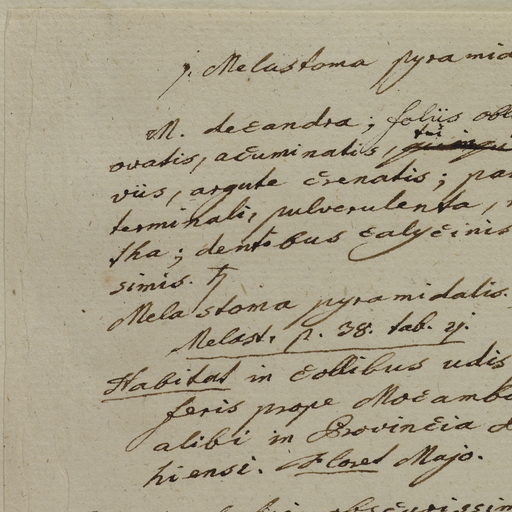 7. Melastoma pyramida
M. decandra; foliis obl
ovatis, acuminatis, tri
viis, argute crenatis; pa
terminali, pulverulenta,
tha; dentibus calycinis
simis. ♄
Melastoma pyramidalis.
Melast. p. 38. tab. 7.
Habitat in collibus udis
feris prope Mocambo
alibi in Provincia
hiensi. Floret Majo.
obscurissim